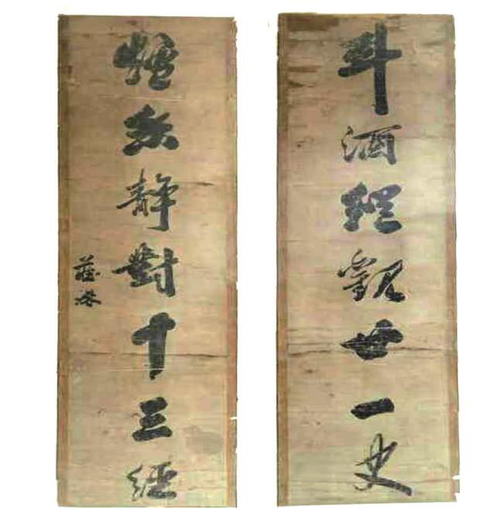 斗酒縱觀廿一史
爐香静對十三經